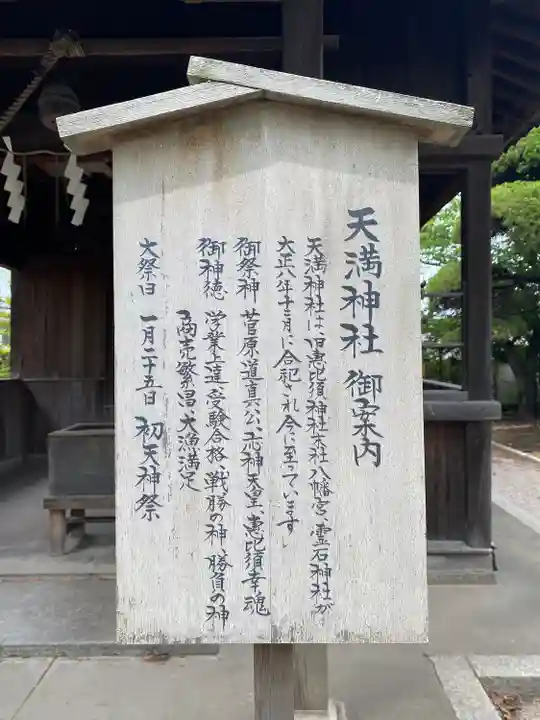 天満神社 御案内
天満神社は、旧恵比須神社末社、八幡宮、霊石神社が
大正八年十二月に合祀され今に至っています」
御祭神 菅原道真公、応神天皇、恵比須幸魂
御神徳 学業上達、受験合格、戦勝の神 勝負の神
商売繁昌、大漁満足
大祭日 一月二十五日 初天神祭